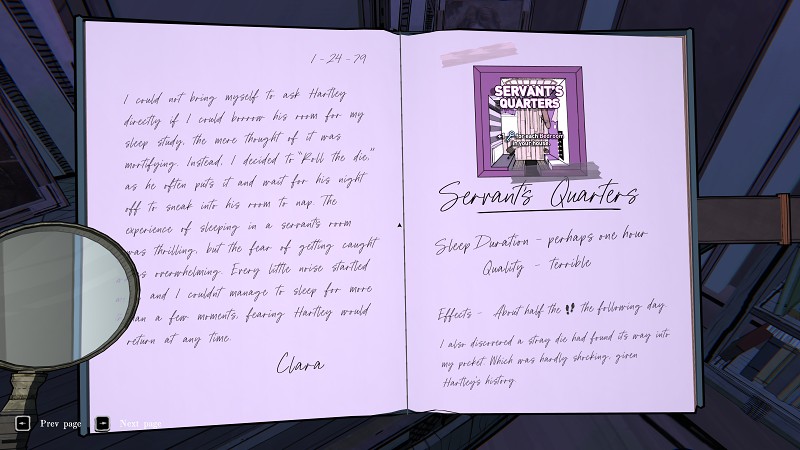 1-24-79
I could not bring myself to ask Hartley
directly if I could borrow his room for my
sleep study, the mere thought of it was
mortifying. Instead, I decided to "Roll the die,"
as he often puts it and wait for his night
off to sneak into his room to nap. The
experience of sleeping in a servant's room
was thrilling, but the fear of getting caught
was overwhelming. Every little noise startled
and I couldnt manage to sleep for more
than a few moments, fearing Hartley would
return at any time.
Clara
SERVANT'S
QUARTERS
for each Bedroom
in your house.
Servant's Quarters
Sleep Duration - perhaps one hour
Quality - terrible
Effects - About half the the following day.
I also discovered a stray die had found its way into
my pocket. Which was hardly shocking, given
Hartley's history.
Prev page
Next page